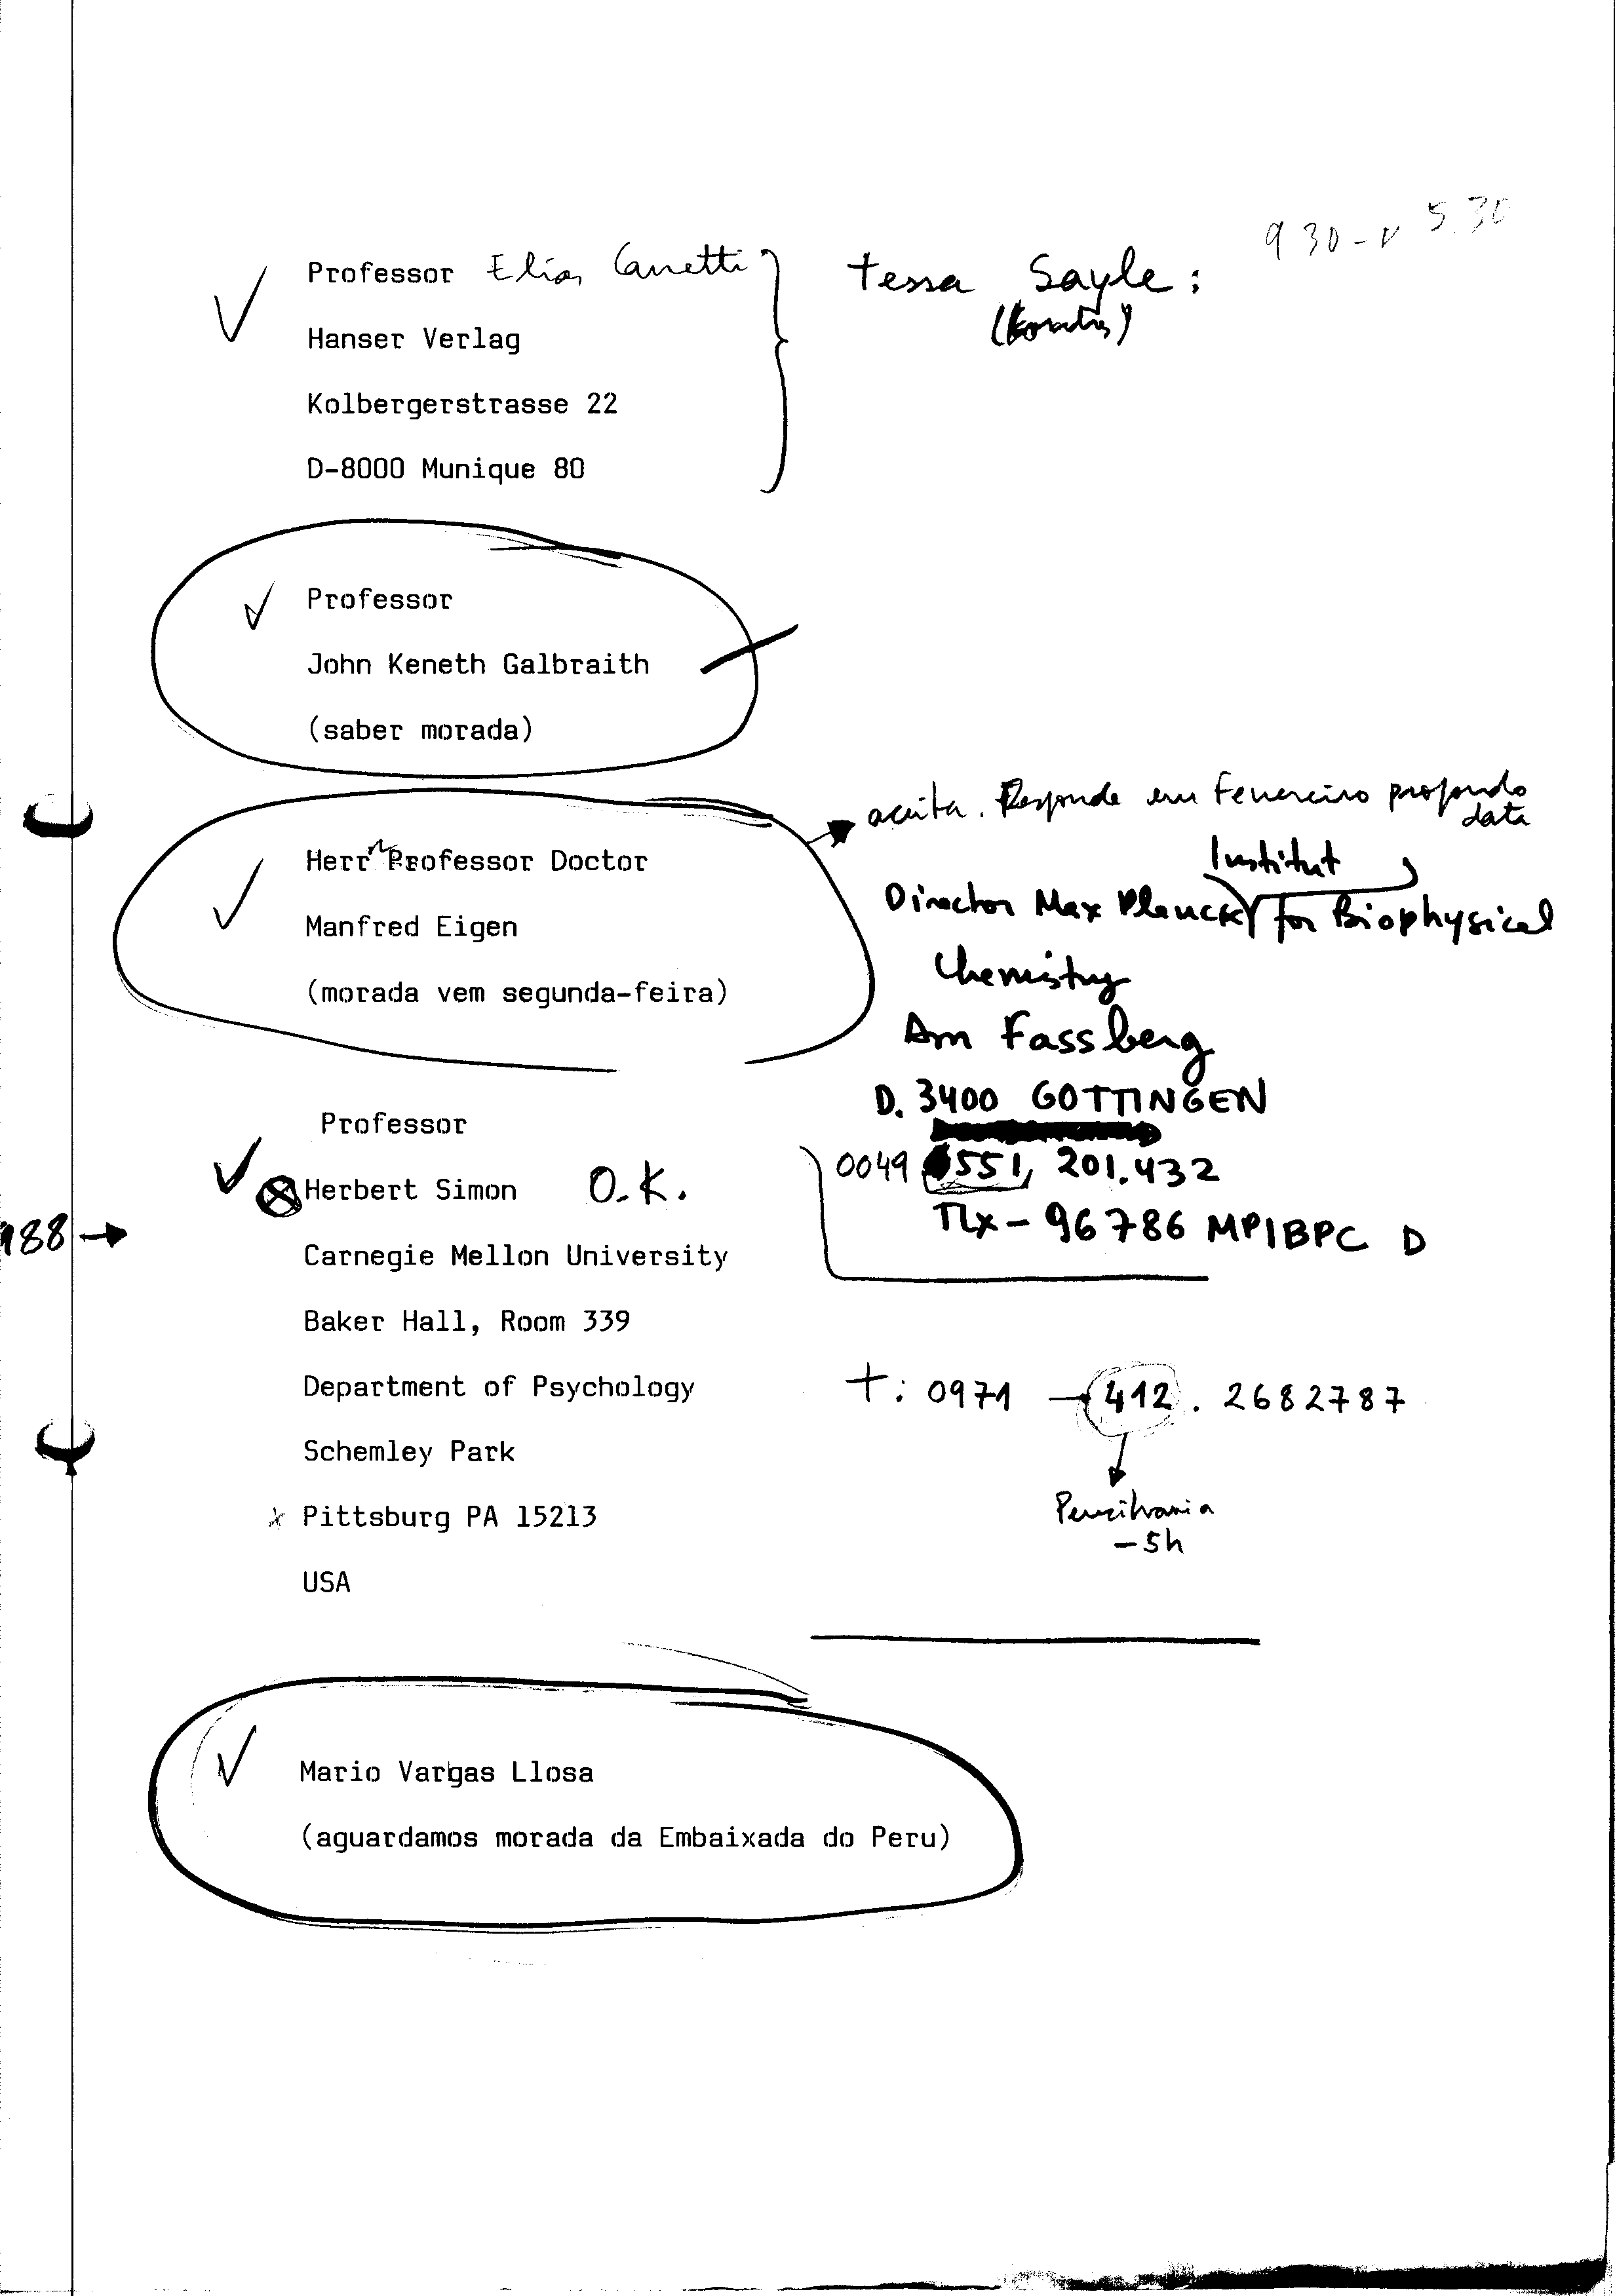 9 30 - 5.30
Professor Elias Canetti
Tessa Sayle :
Hanser Verlag
Kolbergerstrasse 22
D-8000 Munique 80
Professor
John Keneth Galbraith
(saber morada)
aceita. Responde em Fevereiro propondo
data
Herr Professor Doctor
Institut
Director Max Planck for Biophysical
Manfred Eigen
Chemistry
(morada vem segunda-feira)
Am Fassberg
D. 3400 GOTTINGEN
Professor
0049 551, 201.432
Herbert Simon O.K.
TLX - 96786 MPIBPC D
988 →
Carnegie Mellon University
Baker Hall, Room 339
Department of Psychology
t: 0971 → 412. 2682787
Schemley Park
Pittsburg PA 15213
Pensilvania
- 5h
USA
Mario Vargas Llosa
(aguardamos morada da Embaixada do Peru)